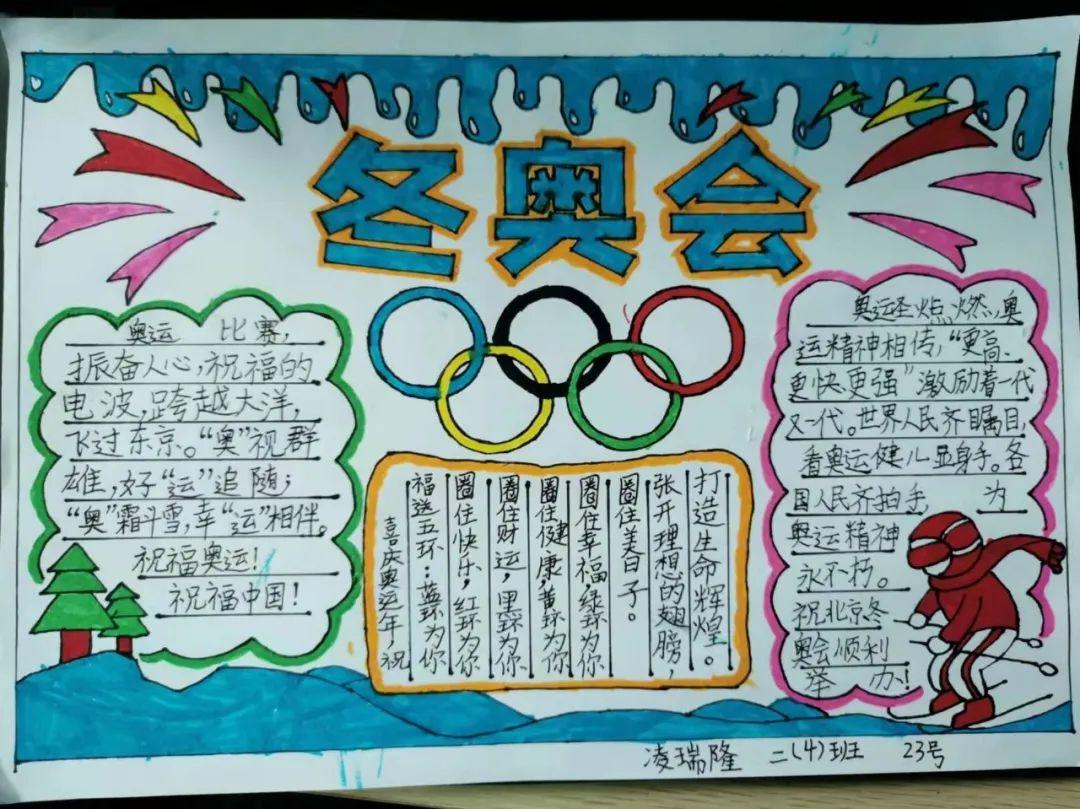 冬奥会
奥运 比赛,
振奋人心,祝福的
电波,跨越大洋,
飞过东京。“奥”视群
雄,好“运”追随;
“奥”霜斗雪,幸“运”相伴。
祝福奥运!
祝福中国!
喜庆奥运年祝
福送五环:蓝环为你
圈住快乐,红环为你
圈住财运,黑环为你
圈住健康,黄环为你
圈住幸福,绿环为你
圈住美日子。
张开理想的翅膀,
打造生命辉煌。
奥运圣火点燃,奥
运精神相传,“更高、
更快更强”激励着一代
又一代。世界人民齐瞩目,
看奥运健儿显身手。各
国人民齐拍手, 为
奥运精神
永不朽。
祝北京冬
奥会顺利
举 办!
凌瑞隆 二(4)班 23号